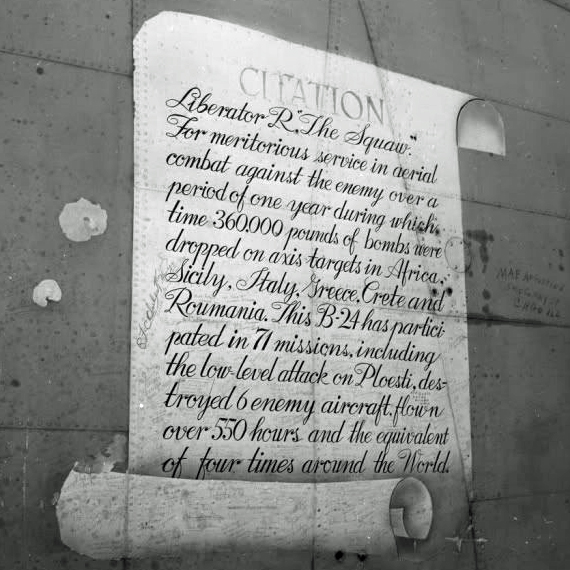 CITATION
Liberator "R", "The Squaw".
For meritorious service in aerial
combat against the enemy over a
period of one year during which
time 360.000 pounds of bombs were
dropped on axis targets in Africa,
Sicily, Italy, Greece, Crete and
Roumania. This B-24 has partici-
pated in 71 missions, including
the low-level attack on Ploesti, des-
troyed 6 enemy aircraft, flown
over 550 hours and the equivalent
of four times around the World.